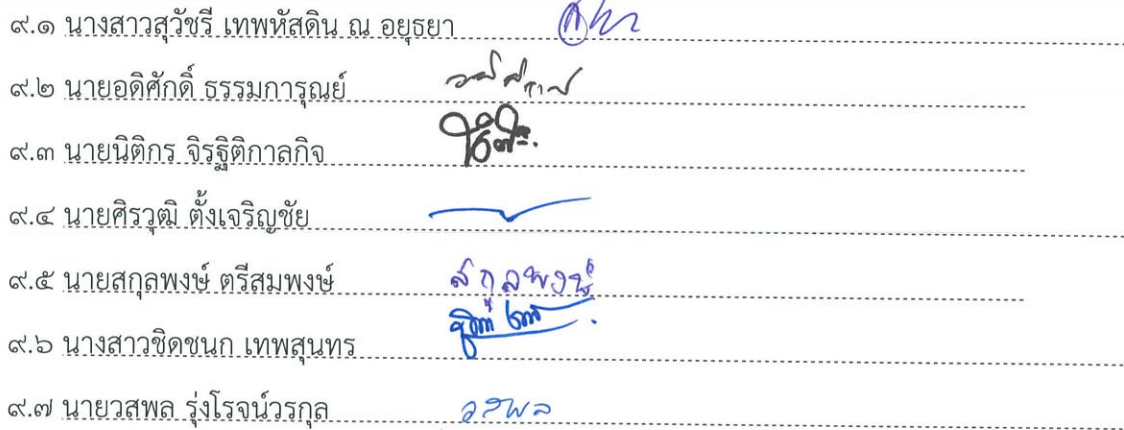 ๙.๑ นางสาวสุวัชรี เทพหัสดิน ณ อยุธยา
๙.๒ นายอดิศักดิ์ ธรรมการุณย์
๙.๓ นายนิติกร จิรฐิติกาลกิจ
๙.๔ นายศิรวุฒิ ตั้งเจริญชัย
๙.๕ นายสกุลพงษ์ ตรีสมพงษ์ สกุลพงษ์
๙.๖ นางสาวชิดชนก เทพสุนทร
๙.๗ นายวสพล รุ่งโรจน์วรกุล วสพล